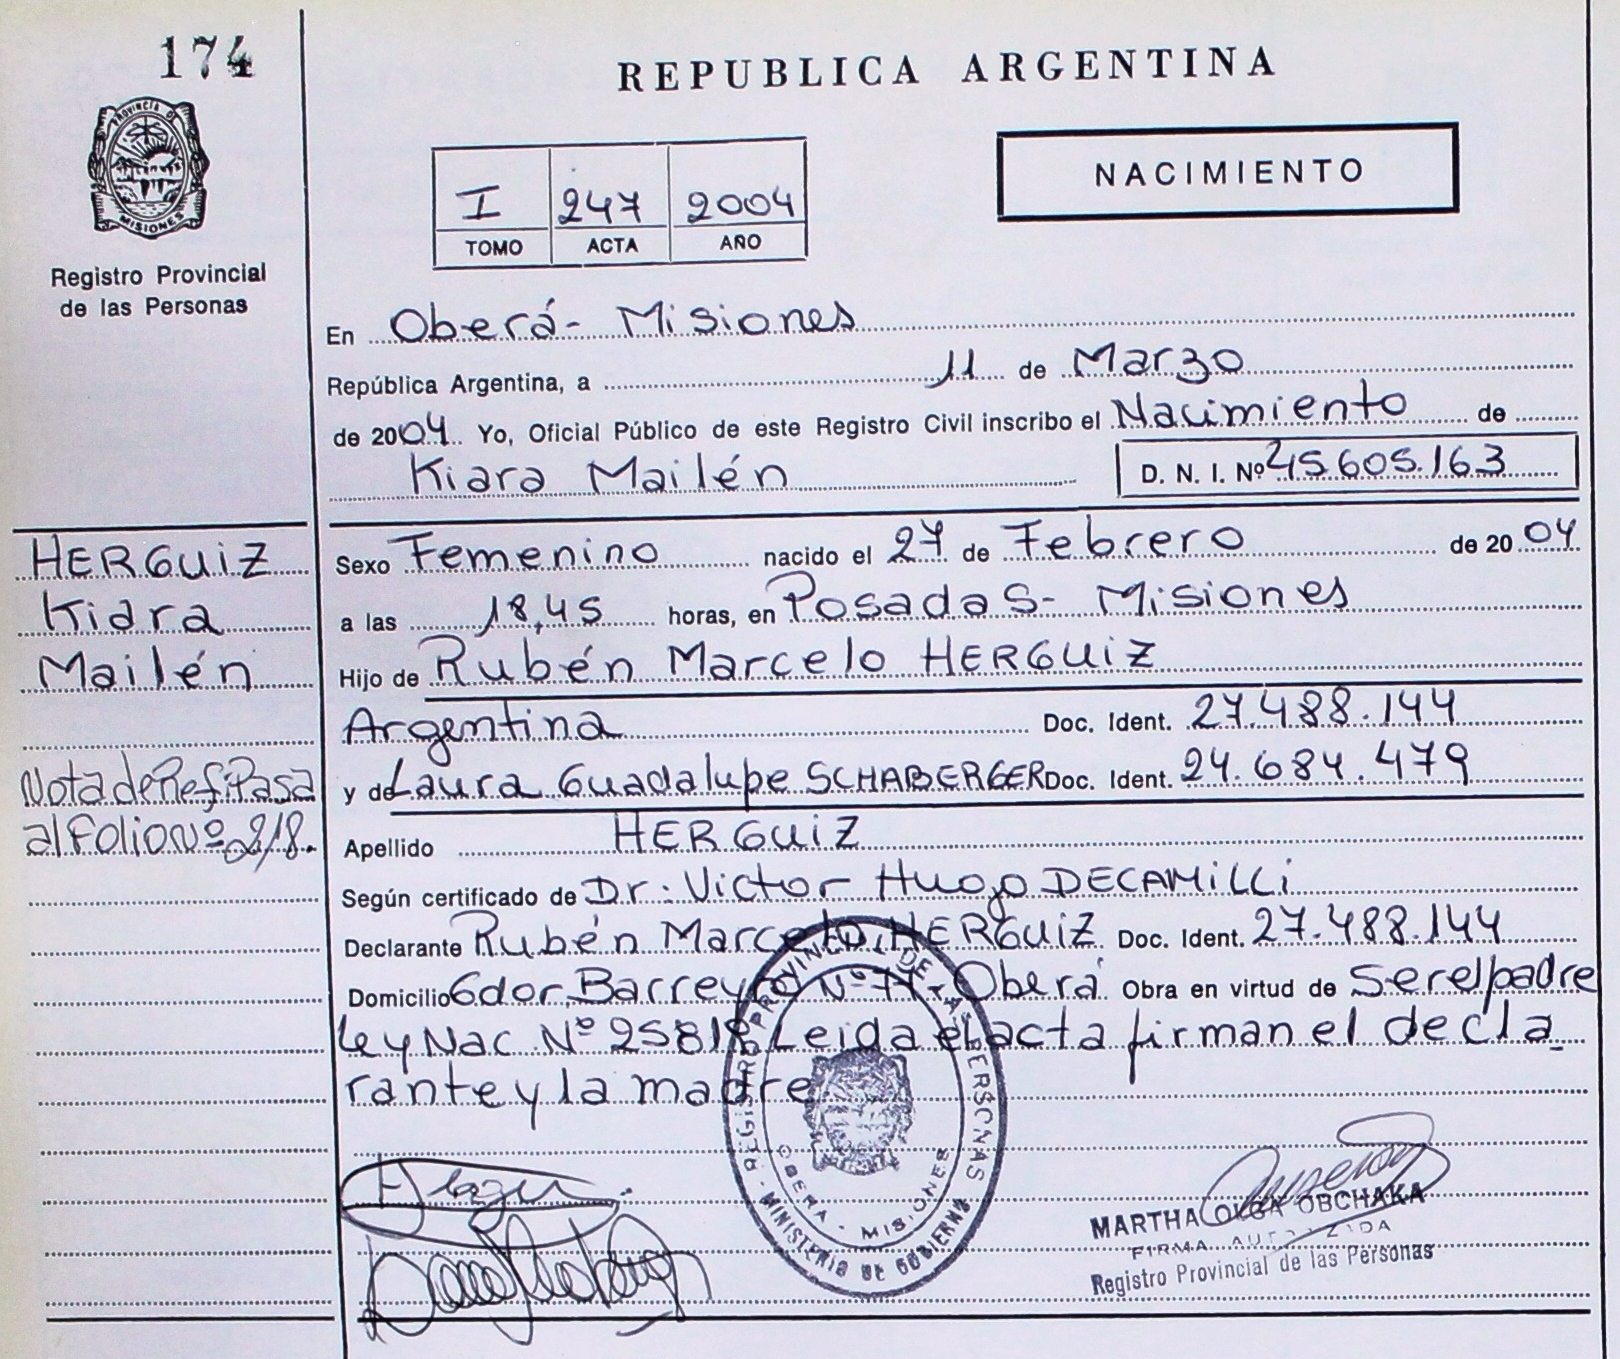 174
REPUBLICA ARGENTINA
PROVINCIA DE
MISIONES
Registro Provincial
de las Personas
NACIMIENTO
I 247 2004
TOMO ACTA AÑO
En Oberá- Misiones
República Argentina, a 11 de Marzo
de 2004 Yo, Oficial Público de este Registro Civil inscribo el Nacimiento de
Kiara Mailén D. N. I. Nº 45.605.163
HERGUIZ
Kiara
Mailén
Nota de Ref. Pasa
al Folio Nº 218.
Sexo Femenino nacido el 27 de Febrero de 2004
a las 18,45 horas, en Posadas- Misiones
Hijo de Rubén Marcelo HERGUIZ
Argentina Doc. Ident. 27.488.144
y de Laura Guadalupe SCHABERGER Doc. Ident. 24.684.479
Apellido HERGUIZ
Según certificado de Dr. Victor Hugo DECAMILLI
Declarante Rubén Marcelo HERGUIZ Doc. Ident. 27.488.144
Domicilio Gdor. Barreyro Nº - Oberá Obra en virtud de Ser el padre
Ley Nac. Nº 25818 Leida el acta firman el decla
rante y la madre
REGISTRO PROVINCIAL DE LAS PERSONAS
OBERA - MISIONES
MINISTERIO DE GOBIERNO
MARTHA OLGA OBCHAKA
FIRMA AUTORIZADA
Registro Provincial de las Personas